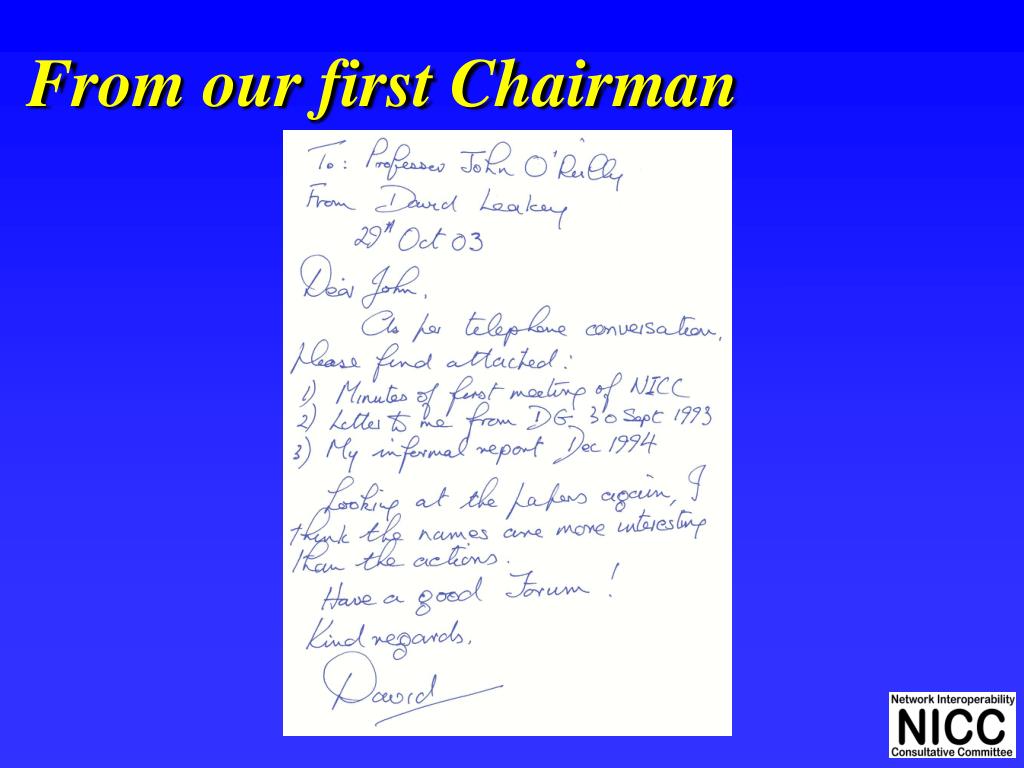 From our first Chairman
To: Professor John O'Reilly
From David Leakey
29th Oct 03
Dear John,
As per telephone conversation,
please find attached:
1) Minutes of first meeting of NICC
2) Letter to me from DG 30 Sept 1993
3) My informal report Dec 1994
Looking at the papers again, I
think the names are more interesting
than the actions.
Have a good Forum!
Kind regards,
David
Network Interoperability
NICC
Consultative Committee